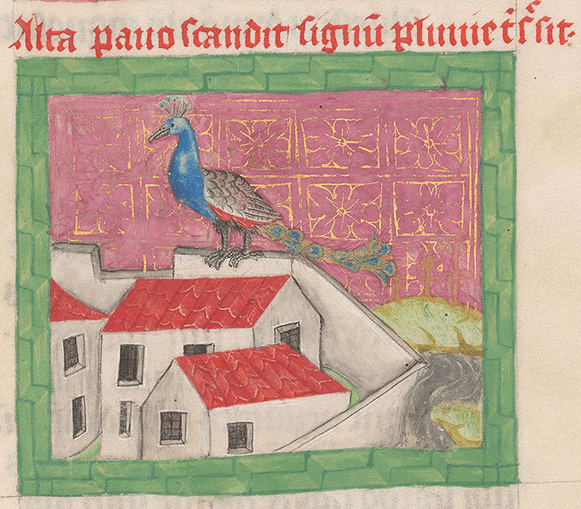 Alta pauo scandit signū pluuie